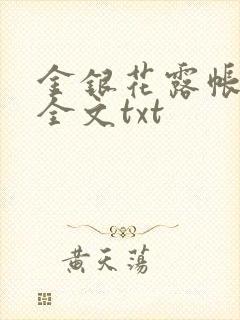 金银花露帐
全文txt
黄天荡